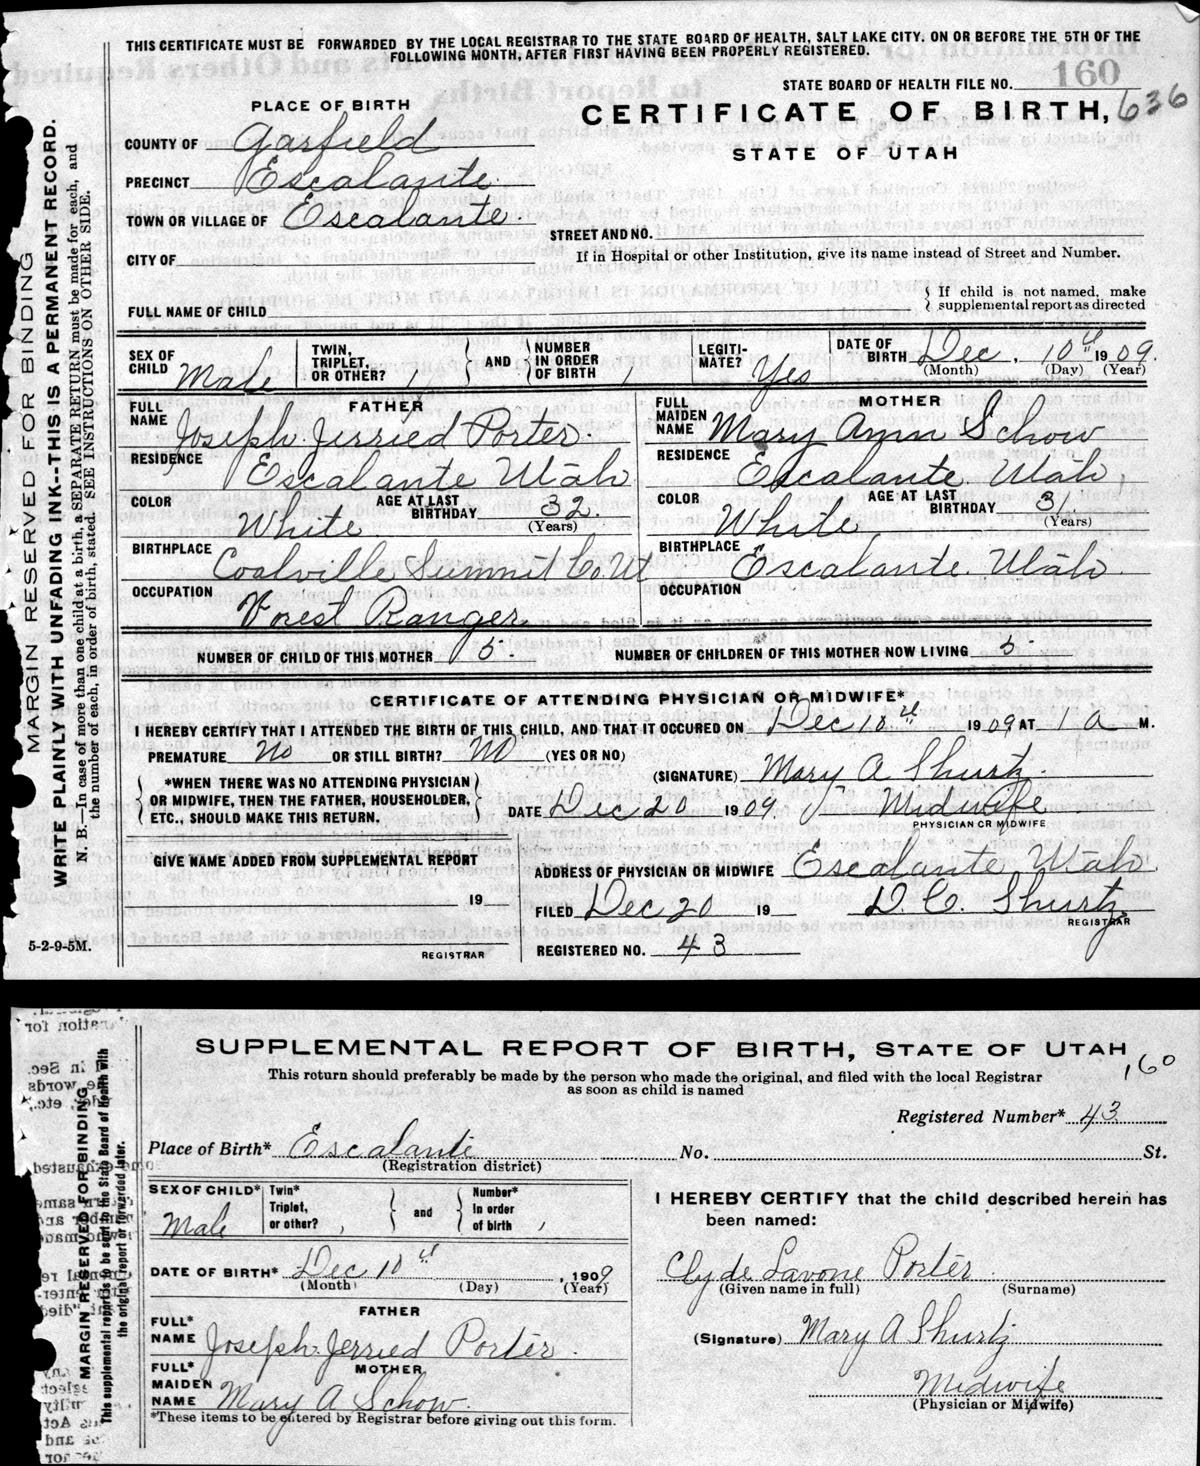 THIS CERTIFICATE MUST BE FORWARDED BY THE LOCAL REGISTRAR TO THE STATE BOARD OF HEALTH, SALT LAKE CITY, ON OR BEFORE THE 5TH OF THE
FOLLOWING MONTH, AFTER FIRST HAVING BEEN PROPERLY REGISTERED.
STATE BOARD OF HEALTH FILE NO. 160
PLACE OF BIRTH
CERTIFICATE OF BIRTH, 636
STATE OF UTAH
COUNTY OF Garfield
PRECINCT Escalante
TOWN OR VILLAGE OF Escalante.
STREET AND NO.
CITY OF
If in Hospital or other Institution, give its name instead of Street and Number.
FULL NAME OF CHILD
If child is not named, make
supplemental report as directed
SEX OF CHILD Male
TWIN, TRIPLET, OR OTHER? 1 AND NUMBER IN ORDER OF BIRTH 1
LEGITIMATE? Yes
DATE OF BIRTH Dec. 10th 1909.
(Month) (Day) (Year)
FATHER
FULL NAME Joseph Jerried Porter.
RESIDENCE Escalante Utah
COLOR White AGE AT LAST BIRTHDAY 32.
(Years)
BIRTHPLACE Coalville Summit Co. Ut
OCCUPATION Forest Ranger.
MOTHER
FULL MAIDEN NAME Mary Ann Schow
RESIDENCE Escalante. Utah,
COLOR White AGE AT LAST BIRTHDAY 31.
(Years)
BIRTHPLACE Escalante. Utah.
OCCUPATION
NUMBER OF CHILD OF THIS MOTHER 5. NUMBER OF CHILDREN OF THIS MOTHER NOW LIVING 5
CERTIFICATE OF ATTENDING PHYSICIAN OR MIDWIFE*
I HEREBY CERTIFY THAT I ATTENDED THE BIRTH OF THIS CHILD, AND THAT IT OCCURED ON Dec 10th 1909 AT 1 a M.
PREMATURE No OR STILL BIRTH? NO (YES OR NO)
*WHEN THERE WAS NO ATTENDING PHYSICIAN
OR MIDWIFE, THEN THE FATHER, HOUSEHOLDER,
ETC., SHOULD MAKE THIS RETURN.
(SIGNATURE) Mary A Shurtz.
DATE Dec 20 1909. Midwife
PHYSICIAN OR MIDWIFE
GIVE NAME ADDED FROM SUPPLEMENTAL REPORT
19
REGISTRAR
ADDRESS OF PHYSICIAN OR MIDWIFE Escalante Utah.
FILED Dec 20 19 D. C. Shurtz
REGISTRAR
REGISTERED NO. 43
5-2-9-5M.
MARGIN RESERVED FOR BINDING
WRITE PLAINLY WITH UNFADING INK--THIS IS A PERMANENT RECORD.
N. B.—In case of more than one child at a birth, a SEPARATE RETURN must be made for each, and
the number of each, in order of birth, stated. SEE INSTRUCTIONS ON OTHER SIDE.
SUPPLEMENTAL REPORT OF BIRTH, STATE OF UTAH
160
This return should preferably be made by the person who made the original, and filed with the local Registrar
as soon as child is named
Registered Number* 43
Place of Birth* Escalante No. St.
(Registration district)
SEX OF CHILD* Male
Twin* Triplet, or other? and Number* In order of birth
DATE OF BIRTH* Dec 10th, 1909
(Month) (Day) (Year)
FATHER
FULL* NAME Joseph Jerried Porter.
MOTHER
FULL* MAIDEN NAME Mary A Schow.
*These items to be entered by Registrar before giving out this form.
I HEREBY CERTIFY that the child described herein has
been named:
Clyde Lavone Porter
(Given name in full) (Surname)
(Signature) Mary A Shurtz
Midwife
(Physician or Midwife)
MARGIN RESERVED FOR BINDING.
This supplemental report is to be sent to the State Board of Health with
the original report or forwarded later.